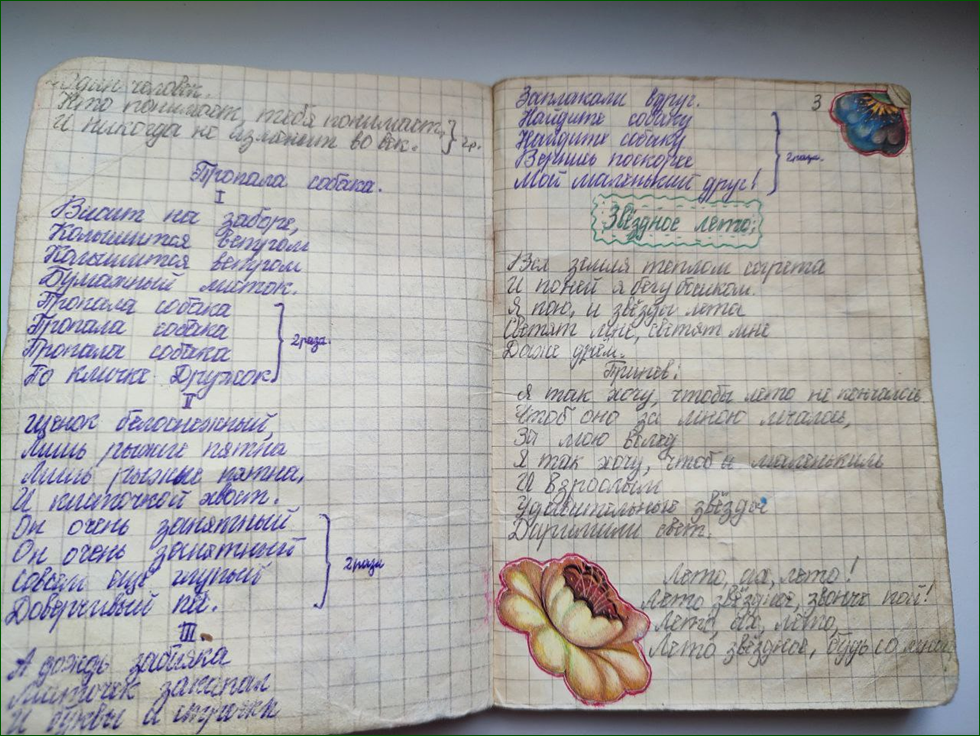 Один человек.
Кто понимает, тебя понимает,
И никогда не изменит во век. 2р.
Пропала собака.
I
Висит на заборе,
Колышится ветром
Колышится ветром
Бумажный листок.
Пропала собака
Пропала собака
Пропала собака
По кличке Дружок
2 раза.
II
Щенок белоснежный,
Лишь рыжие пятна
Лишь рыжие пятна,
И кисточкой хвост.
Он очень занятный
Он очень занятный
Совсем еще глупый
Доверчивый пёс.
2 раза
III
А дождь забияка
Листочек закапал
И буквы и строчки
3
Заплакали вдруг.
Найдите собаку
Найдите собаку
Вернись поскорее
Мой маленький друг!
2 раза.
Звёздное лето:
Вся земля теплом согрета
И по ней я бегу босиком.
Я пою, и звёзды лета
Светят мне, светят мне
Даже днём.
Припев:
Я так хочу, чтобы лето не кончалось
Чтоб оно за мною мчалось,
За мною вслед
Я так хочу, чтобы маленьким
И взрослым
Удивительные звёзды
Дарили свет.
Лето, ах, лето!
Лето звёздное, звонче пой!
Лето, ах, лето,
Лето звёздное, будь со мной